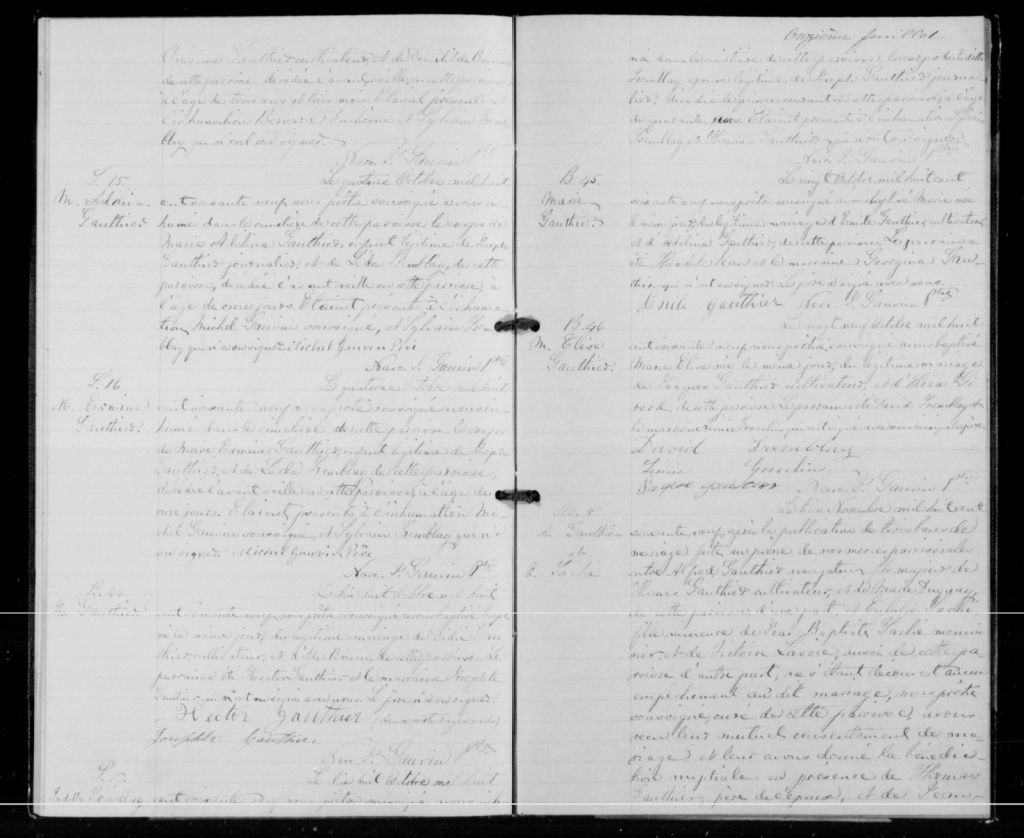 Onésime Gauthier cultivateur, et de
de cette paroisse, décédée l'avant veille en cette paroisse
à l'âge de trois ans et trois mois. Etaient présents à
l'inhumation Bernard Duchesne et Sylvain Trem-
blay qui n'ont su signer.
Narc. P. Gauvin Ptre
S. 15.
M. Adélina
Gauthier
Le quatorze Octobre mil huit
cent soixante neuf nous prêtre soussigné avons in-
humé dans le cimetière de cette paroisse le corps de
Marie Gauthier, enfant légitime de Joseph
Gauthier journalier, et de Léda Tremblay, de cette
paroisse, décédée l'avant veille en cette paroisse, à
l'âge de onze jours. Etaient présents à l'inhuma-
tion, Michel Gauvin soussigné, et Sylvain Trem-
blay qui n'a su signer. Michel Gauvin
Narc. P. Gauvin Ptre
S. 16
M. Ermina
Gauthier
Le quatorze Octobre mil huit
cent soixante neuf nous prêtre soussigné avons in-
humé dans le cimetière de cette paroisse le corps
de Marie Ermina Gauthier, enfant légitime de Joseph
Gauthier, et de Léda Tremblay de cette paroisse,
décédée l'avant veille en cette paroisse, à l'âge de
onze jours. Etaient présents à l'inhumation Mi-
chel Gauvin soussigné, et Sylvain Tremblay qui n'a
su signer. Michel Gauvin
Narc. P. Gauvin Ptre
B. 44.
Gauthier
Le dix sept Octobre mil huit
cent soixante neuf, nous prêtre soussigné avons baptisé
né le même jour, du légitime mariage de Gau-
thier, cultivateur, et de cette paroisse. Le
parrain a été Hector Gauthier et la marraine Josephte
Gauthier qui ont signé avec nous. Le père n'a su signer.
Hector Gauthier
Josephte Gauthier
Narc. P. Gauvin Ptre
S. 17.
Edith Tremblay
Le dix huit Octobre mil huit
cent soixante neuf nous prêtre soussigné avons inhu-
Onzième feuillet
mé dans le cimetière de cette paroisse, le corps de Edith
Tremblay épouse légitime de Joseph Gauthier journa-
lier, décédée le quinze courant en cette paroisse, à l'âge
de quarante ans. Etaient présents à l'inhumation Sylvain
Tremblay, et Thomas Gauthier qui n'ont su signer.
Narc. P. Gauvin Ptre
B. 45.
Marie
Gauthier.
Le vingt Octobre mil huit cent
soixante neuf nous prêtre soussigné avons baptisé Marie née
le même jour, du légitime mariage d'Emile Gauthier cultivateur,
et d'Adelina Gauthier, de cette paroisse. Le parrain a
été Théophile et la marraine Georgina Gau-
thier, qui n'ont su signer. Le père a signé avec nous.
Emile gauthier Narc. P. Gauvin Ptre
B. 46
M. Elise
Gauthier.
Le vingt neuf Octobre mil huit
cent soixante neuf nous prêtre soussigné avons baptisé
Marie Elise née le même jour, du légitime mariage
de Jacques Gauthier cultivateur, et d'Elisa Gi-
rard, de cette paroisse. Le parrain a été David Tremblay et
la marraine Gosselin qui ont signé avec nous ainsi que le père.
David Tremblay
Gosselin
Jacque gautier
Narc. P. Gauvin Ptre
M. 8
A. Gauthier
et
E. Taché
Le Novembre mil huit cent
soixante neuf, après la publication de trois bans de
mariage faite au prône de nos messes paroissiales
entre Alfred Gauthier navigateur, fils majeur de
Thomas Gauthier cultivateur, et de Marie Dugway,
de cette paroisse d'une part, et Eulalie Taché
fille mineure de Jean Baptiste Taché menui-
sier, et de Victoire Lavoie, aussi de cette pa-
roisse d'autre part; ne s'étant découvert aucun
empêchement au dit mariage, nous prêtre
soussigné, curé de cette paroisse, avons
reçu leur mutuel consentement de ma-
riage et leur avons donné la bénédic-
tion nuptiale en présence de Thomas
Gauthier, père de l'époux, et de Jean-